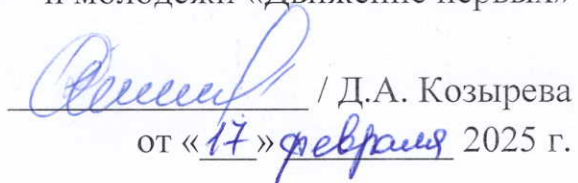 и молодежи «Движение первых»
/ Д.А. Козырева
от «17» февраля 2025 г.